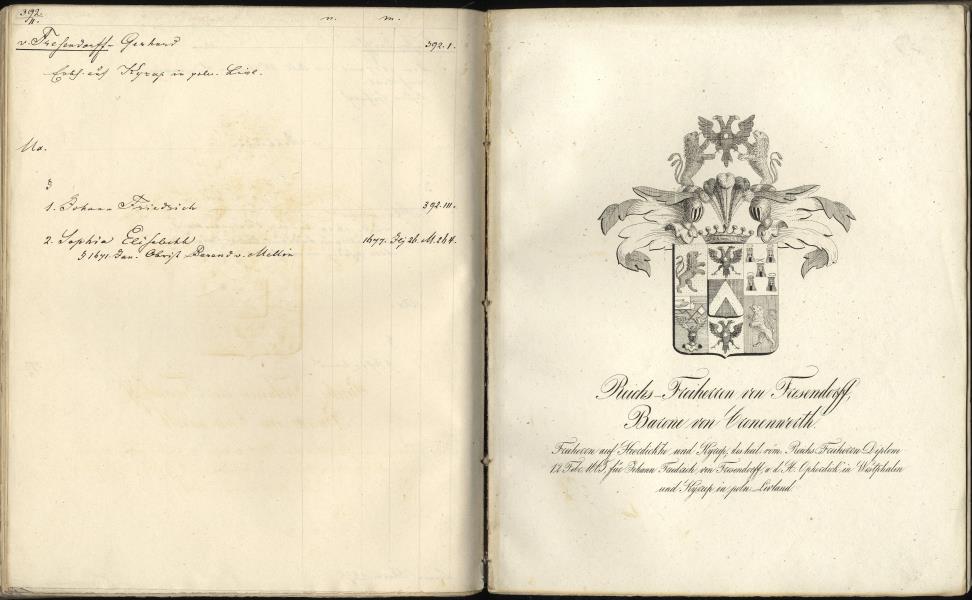 392.
II.
n. m.
v. Fresendorff - Gerhard 392.1.
Erbh. auf Kyrap in poln. Livl.
Ux.
1. Johann Friedrich 392.III.
2. Sophia Elisabeth 1677.
1671. Jan. Obrist Berend v. Mellin
Reichs-Freiherren von Fresendorff,
Barone von Cronenwerth.
Freiherrn auf Herdichke und Kyrup, des heil. röm. Reichs Freiherrn Diplom
für Johann Friedrich von Fresendorff, a. d. H. Opherdick in Westphalen
und Kyrup in poln. Livland.